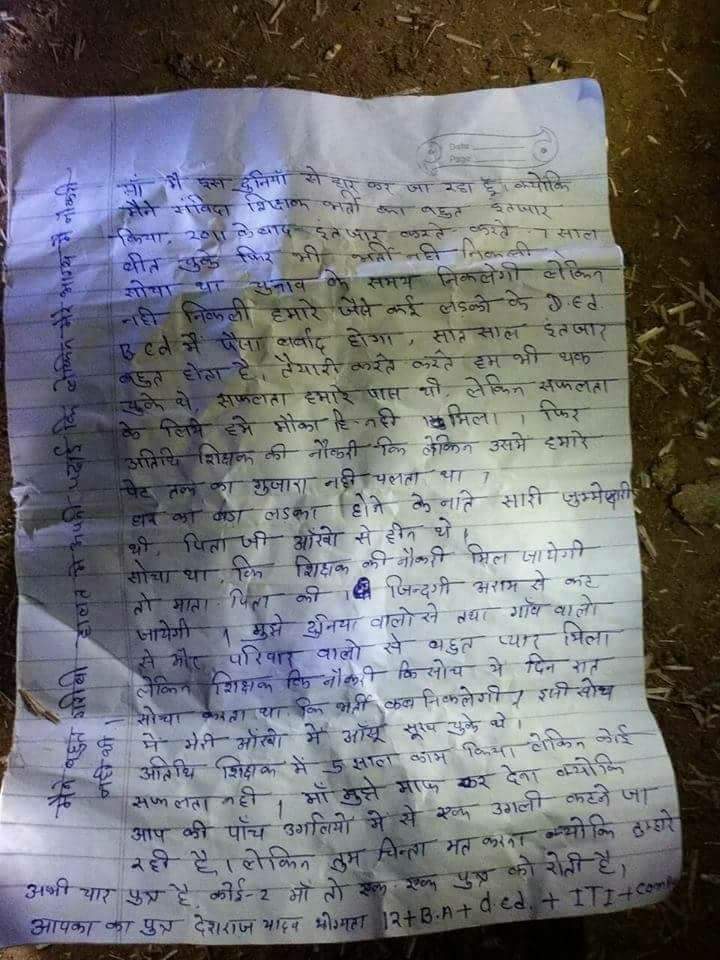 Date
Page
माँ मै इस दुनियाँ से हार कर जा रहा हूँ। क्योकि
मैने संविदा शिक्षक भर्ती का बहुत इंतजार
किया, 2011 के बाद इंतजार करते-करते 7 साल
बीत चुके फिर भी भर्ती नही निकली,
सोचा था चुनाव के समय निकलेगी लेकिन
नही निकली हमारे जैसे कई लडको के D.Ed
B.Ed मै पैसा बर्वाद होगा, सात साल इंतजार
बहुत होता है, तैयारी करते करते हम भी थक
चुके थे, सफलता हमारे पास थी, लेकिन सफलता
के लिये हमे मौका हि नही मिला। फिर
अतिथि शिक्षक की नौकरी कि लेकिन उसमे हमारे
पेट तक का गुजारा नही चलता था।
घर का बडा लडका होने के नाते सारी जुम्मेदारी
थी, पिता जी आँखो से हीन थे।
सोचा था, कि शिक्षक की नौकरी मिल जायेगी
तो माता पिता की जिन्दगी अराम से कट
जायेगी। मुझे दुनिया वालो से तथा गाँव वालो
से और परिवार वालो से बहुत प्यार मिला
लेकिन शिक्षक कि नौकरी कि सोच मे दिन रात
सोचा करता था कि भर्ती कब निकलेगी, इसी सोच
मे मेरी आँखो मे आँसू सूख चुके थे।
अतिथि शिक्षक में 5 साल काम किया लेकिन कोई
सफलता नही। माँ मुझे माफ कर देना क्योकि
आप की पाँच उगलियो मे से एक उगली कटने जा
रही है। लेकिन तुम चिन्ता मत करना क्योकि तुम्हारे
अभी चार पुत्र है, कोई-2 माँ तो एक-एक पुत्र को रोती है,
आपका का पुत्र देशराज यादव योग्यता 12+B.A+d.ed.+ITI+com
मैने बहुत गरीबी हालत मे अपनी पढाई कि लेकिन मेरे भाग्य मै नौकरी
नही थी।